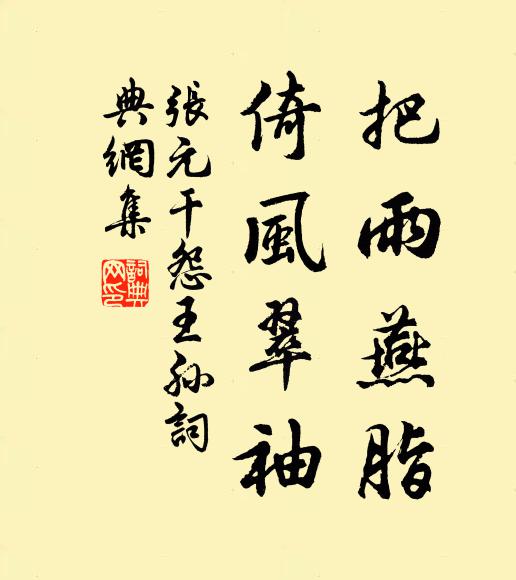 把雨燕脂
倚風翠袖
張元干怨王孫詞
典網集
詞典
网印